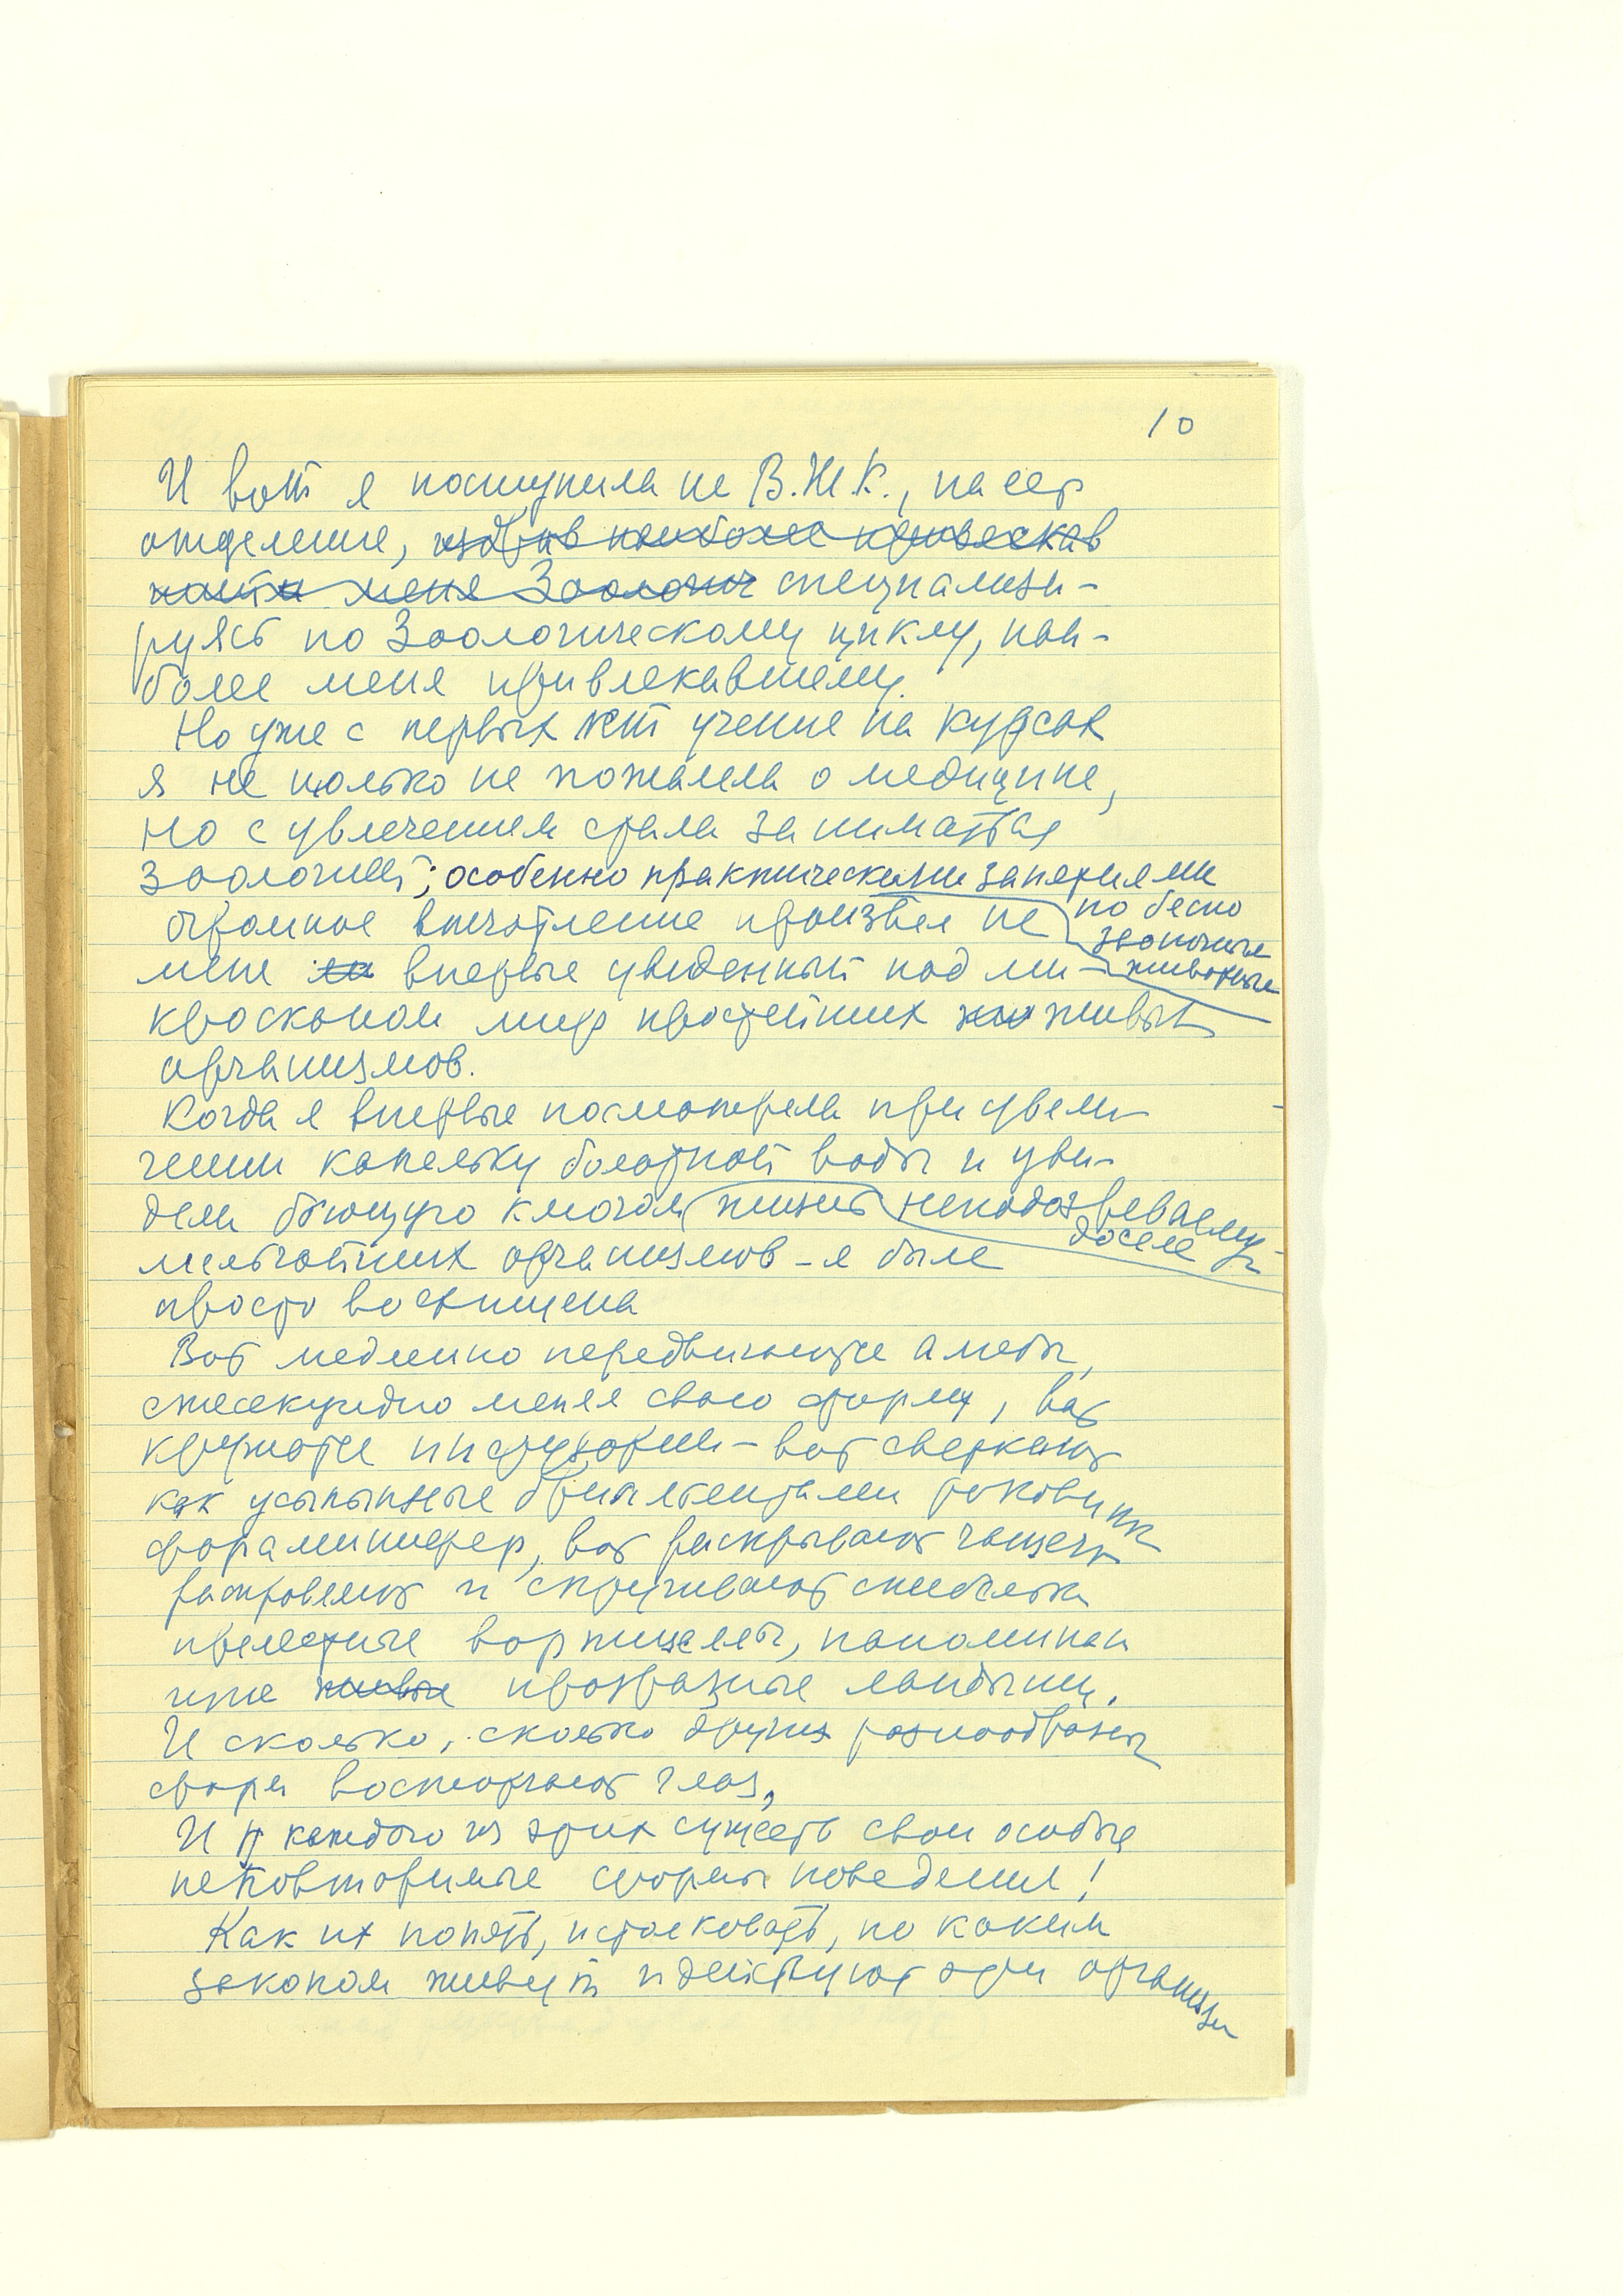 10
И вот я поступила на В.Ж.К., на ест
отделение, избрав наиболее привлекав
специализи-
руясь по Зоологическому циклу, наи-
более меня привлекавшему.
Но уже с первых лет учения на курсах
я не только не пожалела о медицине,
но с увлечением стала заниматься
зоологией; особенно практическими занятиями
по беспо
звоночные
животные
огромное впечатление произвел на
меня впервые увиденный под ми-
кроскопом мир простейших живых
организмов.
Когда я впервые посмотрела при увели-
чении капельку болотной воды и уви-
дела бьющую ключом жизнь неподозреваемы
доселе
мельчайших организмов - я была
просто восхищена
Вот медленно передвигающие амебы,
ежесекундно меняя свою форму, вот
кружатся инфузории - вот сверкают
как усыпанные бриллиантами раковинки
фораминифер, вот раскрывают чашечки
расправляют и скручивают стебельки
прелестные вортицеллы, напоминаю
щие живые прозрачные ландыши.
И сколько, сколько других разнообразных
форм восторгают глаз.
И у каждого из этих существ свои особые
неповторимые формы поведения!
Как их понять, истолковать, по каким
законам живут и действуют эти организмы